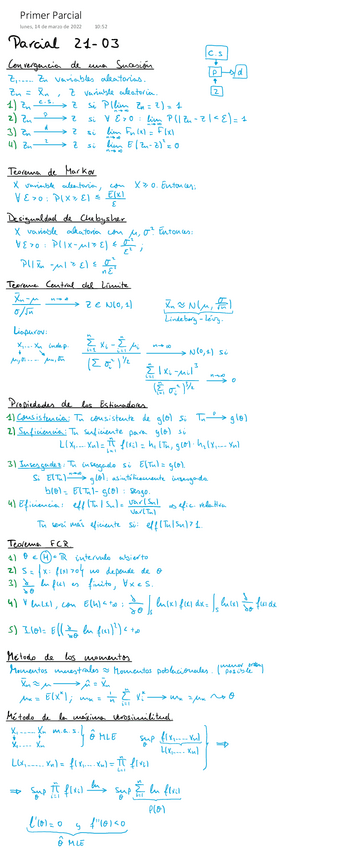 Primer Parcial
lunes, 14 de marzo de 2022 10:52
Parcial 21-03
Convergencia de una Sucesión
Z₁,..... Zn variables aleatorias.
Zn = X̄n , Z variable aleatoria.
1) Zn —c.s.→ Z si P(lim Zn = Z) = 1
2) Zn —p→ Z si ∀ ε>0 : lim P(|Zn - Z| < ε) = 1
3) Zn —d→ Z si lim Fn(x) = F(x)
4) Zn —2→ Z si lim E(Zn - Z)² = 0
c.s
p → d
2
Teorema de Markov
X variable aleatoria, con X ≥ 0. Entonces:
∀ ε>0 : P(X ≥ ε) ≤ E(X)/ε
Desigualdad de Chebyshev
X variable aleatoria con μ, σ² Entonces:
∀ ε>0 : P(|X-μ| ≥ ε) ≤ σ²/ε² ;
P(|X̄n - μ| ≥ ε) ≤ σ²/nε²
Teorema Central del Límite
X̄n-μ / σ/√n —n→∞→ Z ∈ N(0,1) X̄n ≈ N(μ, σ/√n)
Lindeberg-Lévy.
Liapunov:
X₁,... Xn indep.
Propiedades de los Estimadores
1) Consistencia: Tn consistente de g(θ) si Tn —p→ g(θ)
2) Suficiencia: Tn suficiente para g(θ) si
3) Insesgadez: Tn insesgado si E(Tn) = g(θ).
Si E(Tn) —n→∞→ g(θ): asintóticamente insesgado
b(θ) = E(Tn) - g(θ) : sesgo.
4) Eficiencia: eff(Tn|Sn) = Var(Sn)/Var(Tn) → efic. relativa
Tn será más eficiente si: eff(Tn|Sn) > 1.
Teorema FCR
1) θ ∈ Ⓗ = ℝ intervalo abierto
2) S = {x: f(x)>0} no depende de θ
3) ∂/∂θ ln f(x) es finito, ∀ x ∈ S.
5) I(θ) = E((∂/∂θ ln f(x))²) < +∞
Método de los momentos
Momentos muestrales ≈ Momentos poblacionales. (menor orden posible)
X̄n ≈ μ → μ̂ = X̄n
Método de la máxima verosimilitud
X₁,..... Xn m.a.s. } θ̂ MLE
x₁,... xn
L(x₁,..... xn) = f(x₁,... xn) = ∏ f(xi)
⇒ sup ∏ f(xi) —ln→ sup ∑ ln f(xi)
l(θ)
l'(θ) = 0 y l''(θ) < 0
θ̂ MLE